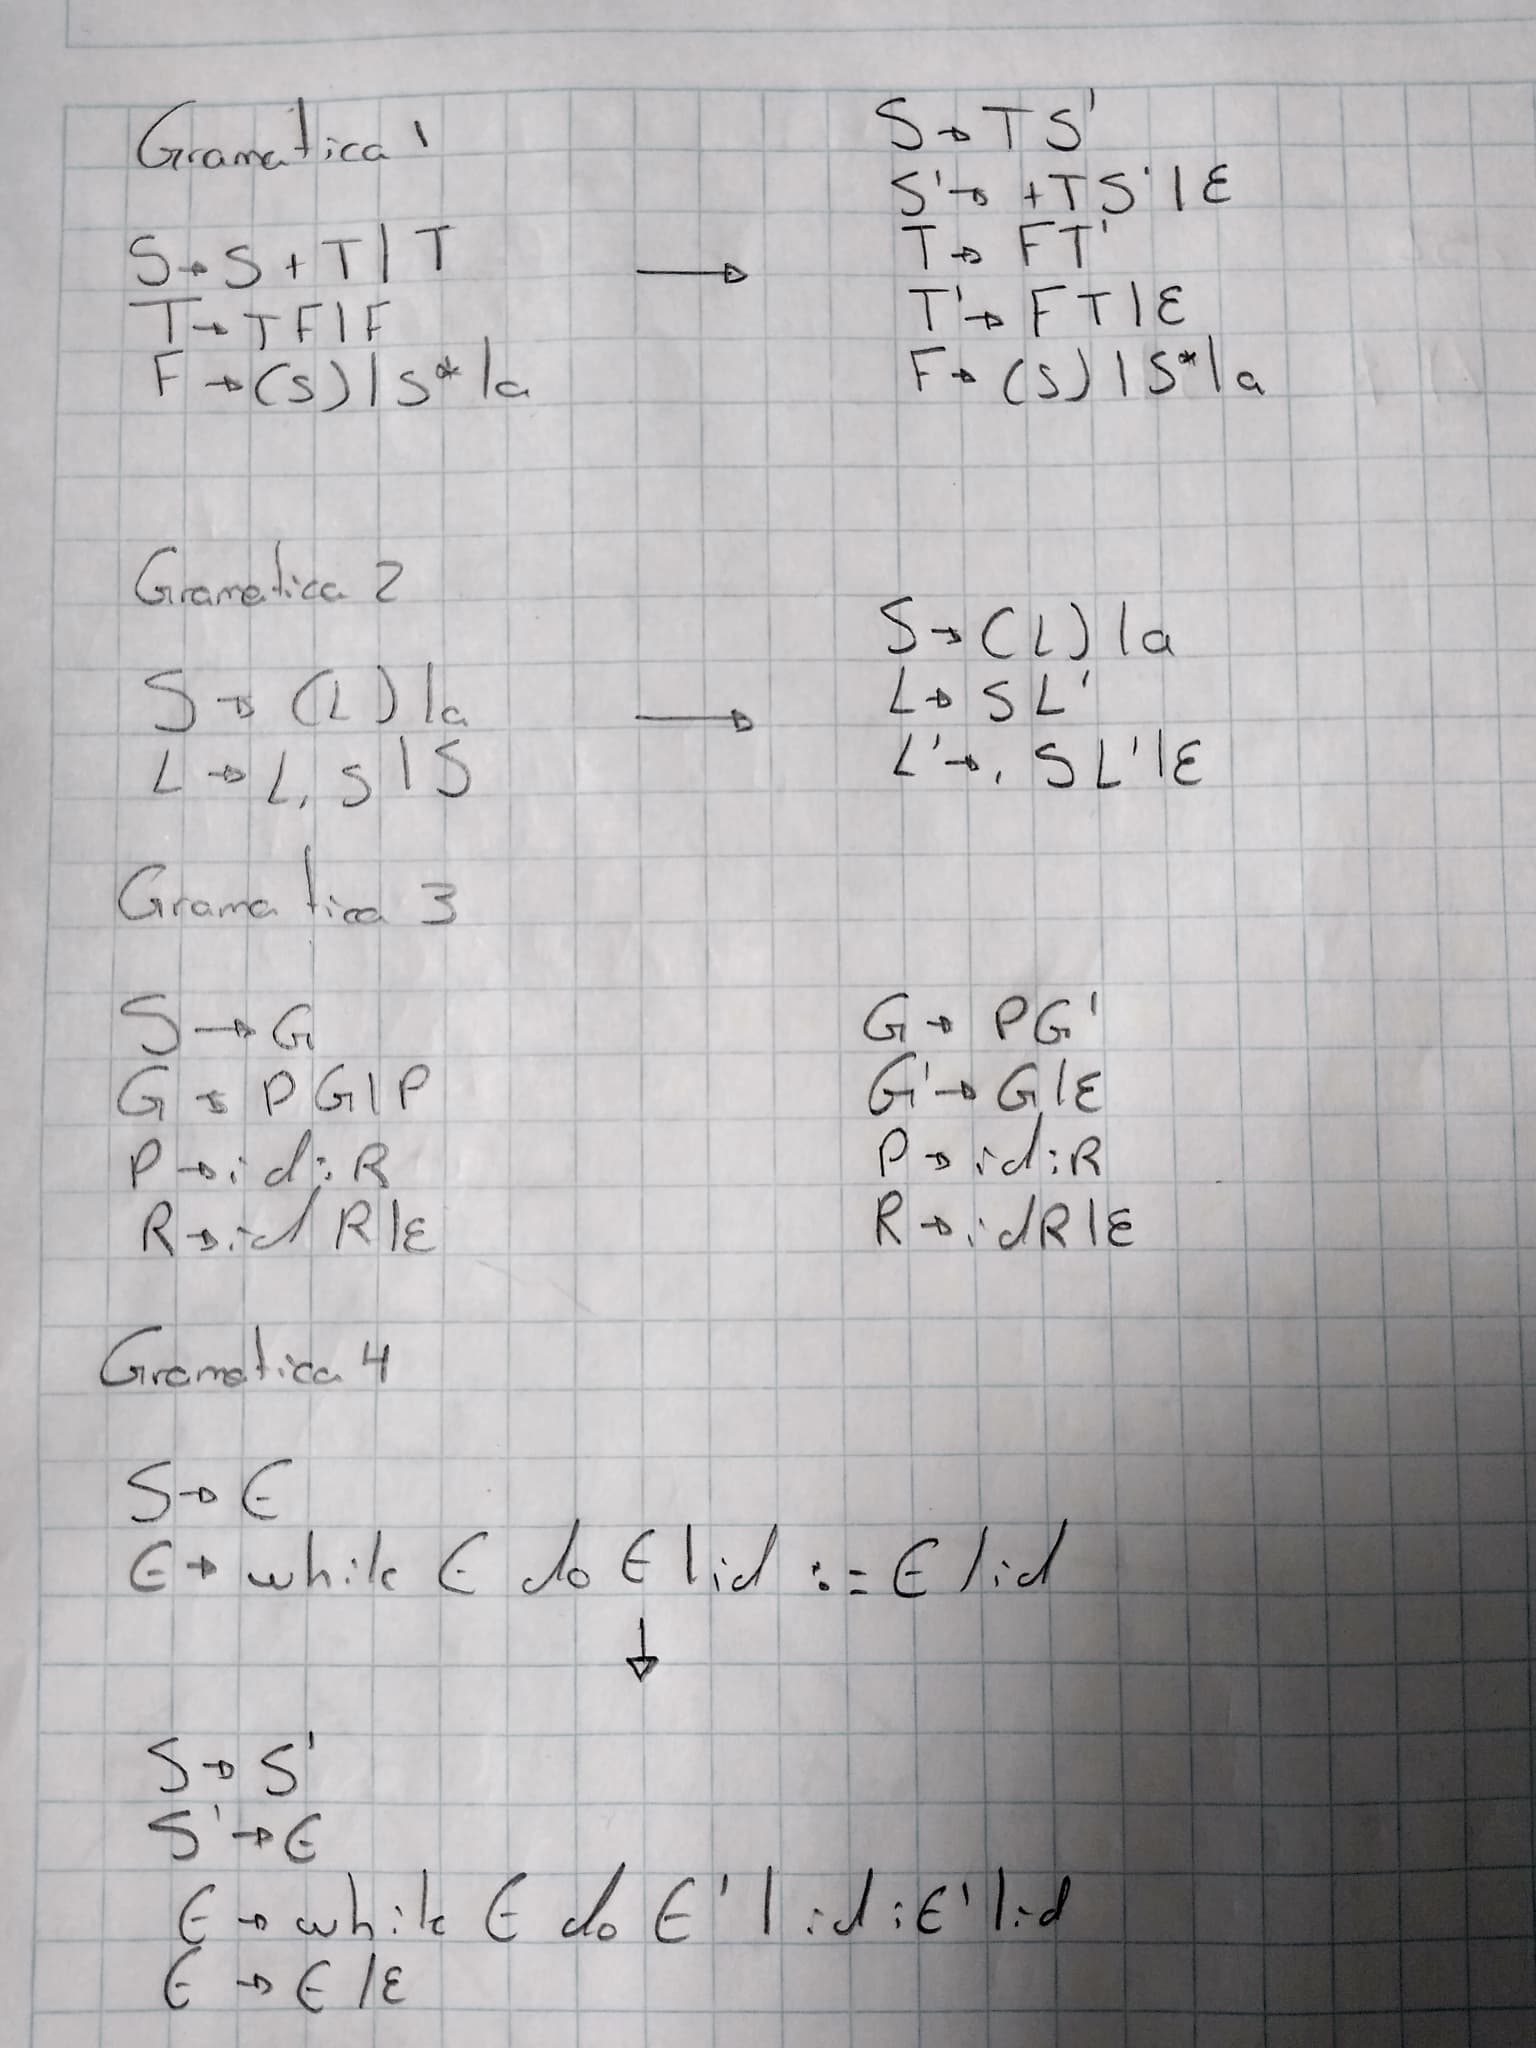 Gramatica 1
S → S + T | T
T → T F | F
F → (S) | S* | a
S → T S'
S' → + T S' | ε
T → F T'
T' → F T | ε
F → (S) | S* | a
Gramatica 2
S → (L) | a
L → L, S | S
S → (L) | a
L → S L'
L' → , S L' | ε
Gramatica 3
S → G
G → P G | P
P → id : R
R → id R | ε
G → P G'
G' → G | ε
P → id : R
R → id R | ε
Gramatica 4
S → E
E → while E do E | id := E | id
↓
S → S'
S' → E
E → while E do E' | id : E' | id
E → E | ε